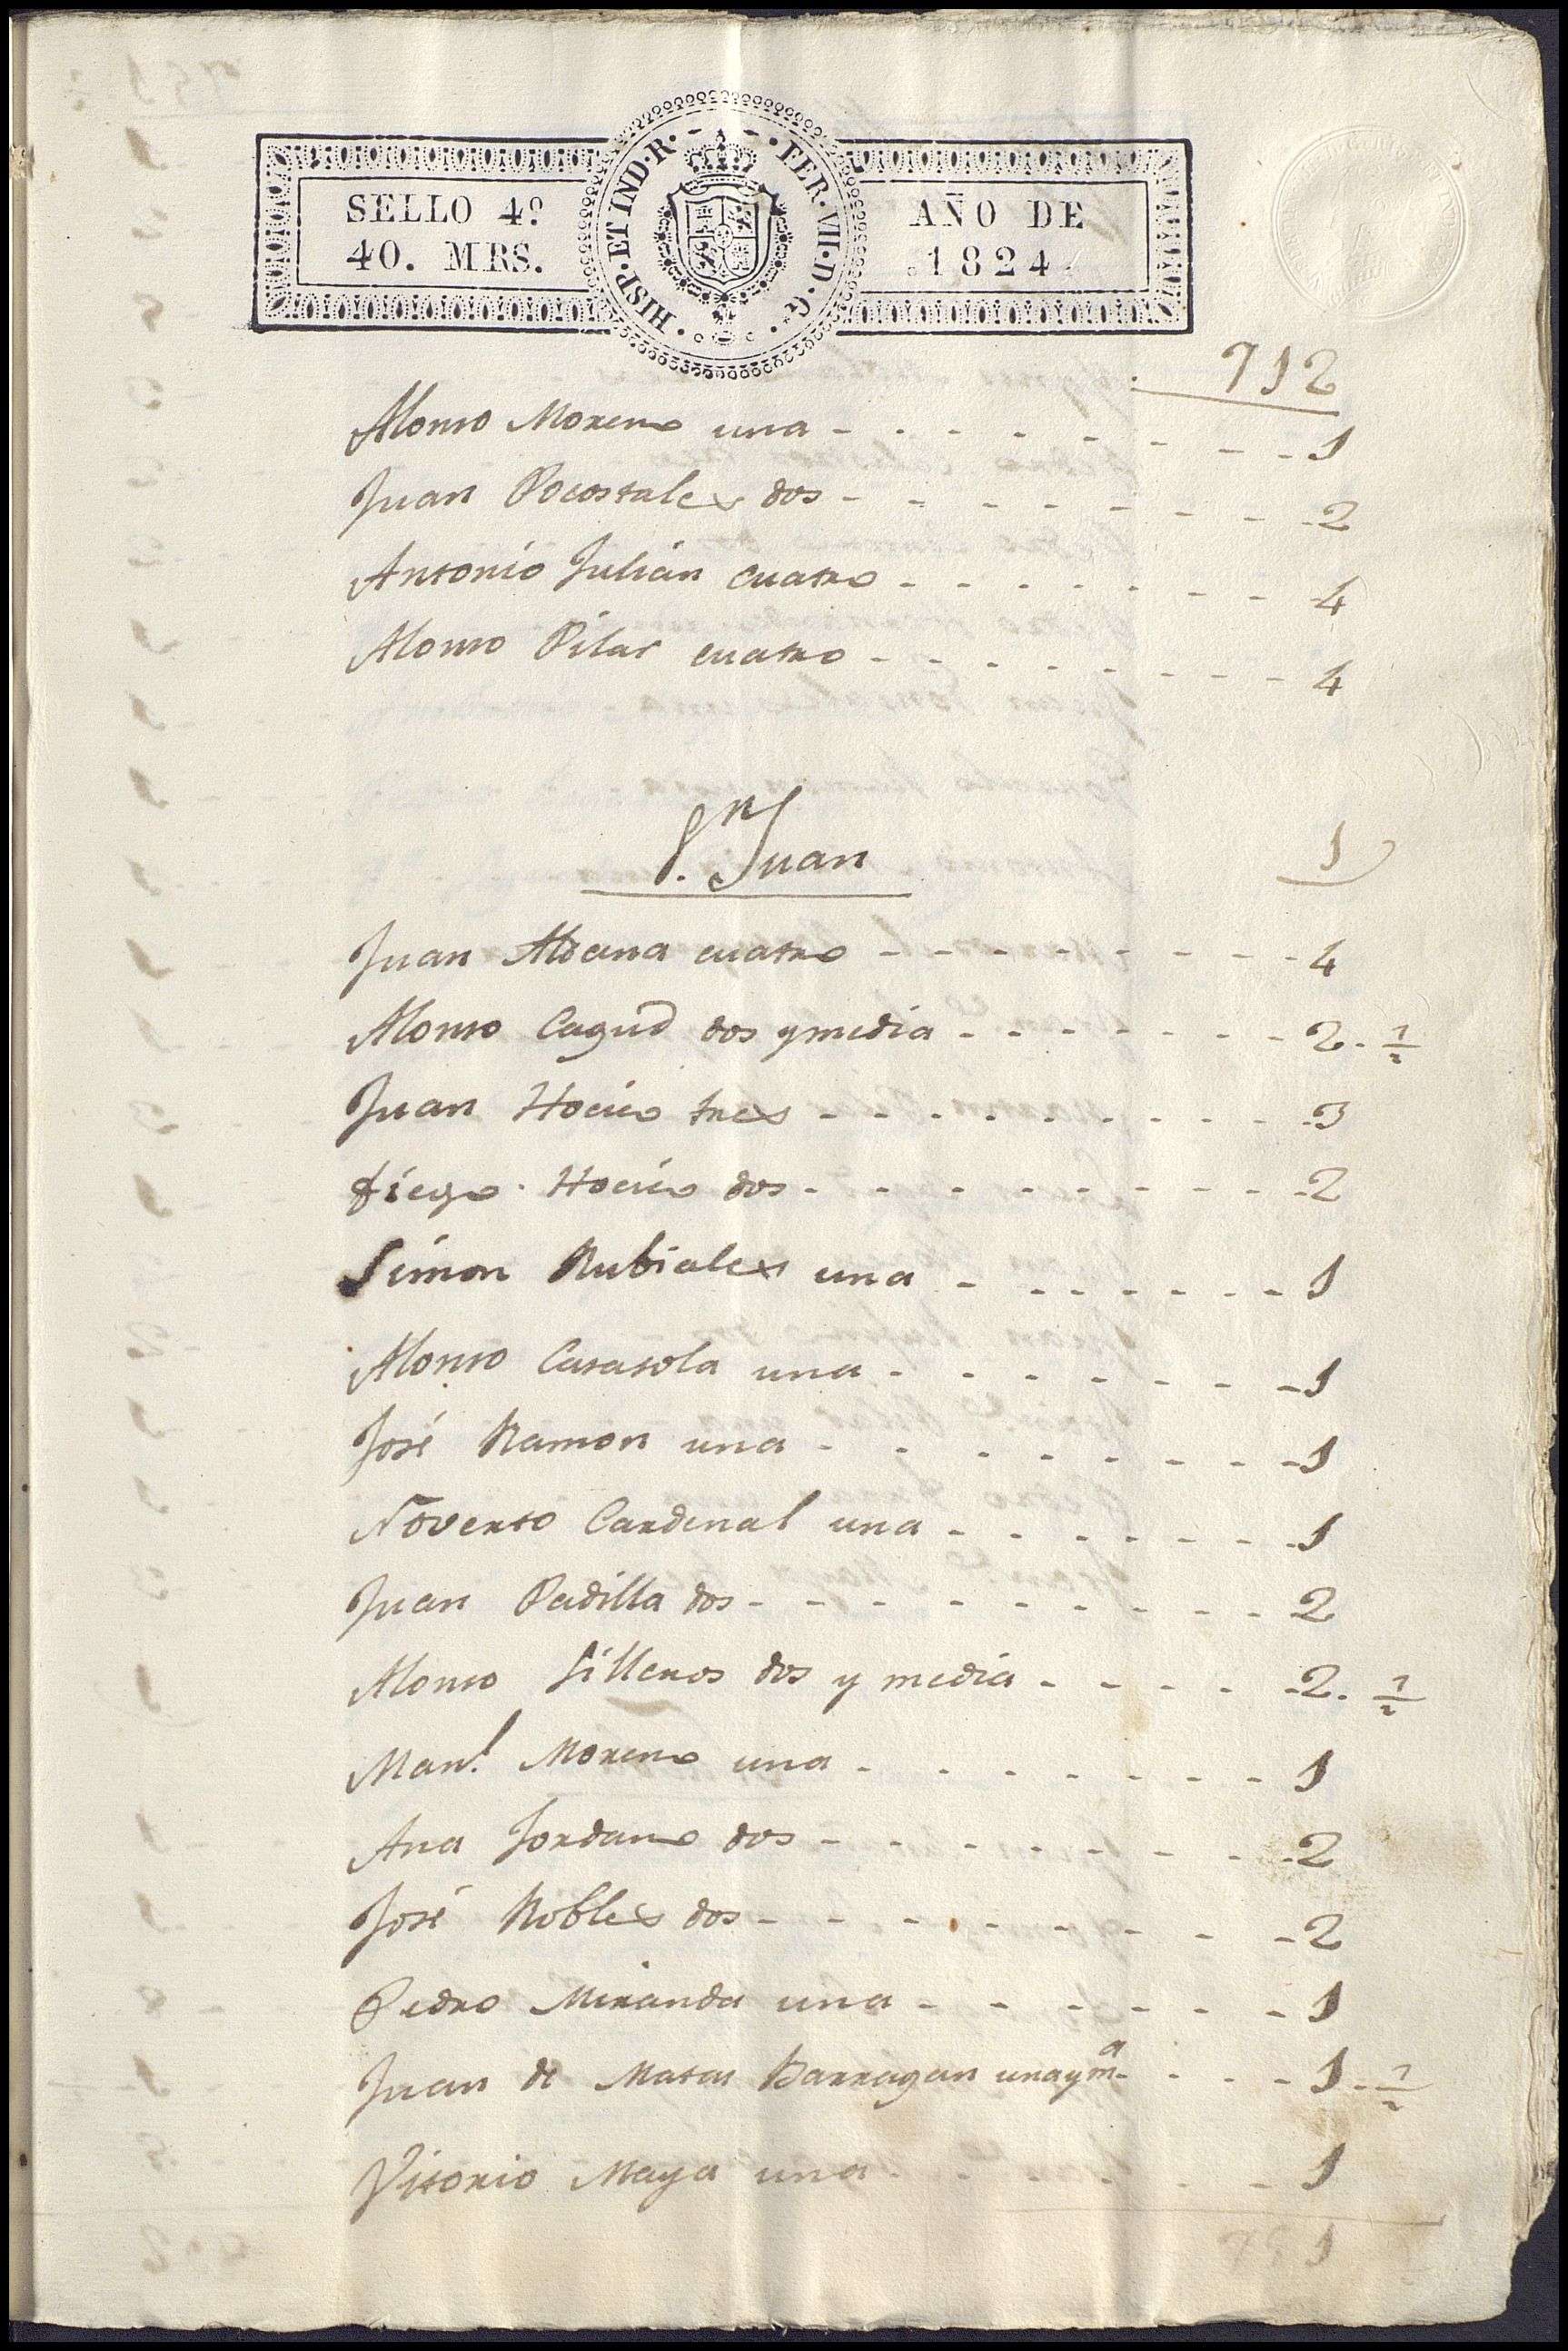 SELLO 4º
40. MRS.
HISP · ET IND · R · FER · VII · D · G ·
AÑO DE
1824
712
Alonso Moreno una - - - - - - - - 1
Juan Pocostales dos - - - - - - - - 2
Antonio Julian cuatro - - - - - - - 4
Alonso Pilar cuatro - - - - - - - - 4
Sn. Juan 1
Juan Aldana cuatro - - - - - - - - 4
Alonso Cagud dos y media - - - - - - 2. 1/2
Juan Hocico tres - - - - - - - - - 3
diego Hocico dos - - - - - - - - - 2
Simon Rubiales una - - - - - - - 1
Alonso Casasola una - - - - - - - 1
José Ramon una - - - - - - - - 1
Noverto Cardenal una - - - - - - - 1
Juan Padilla dos - - - - - - - - - 2
Alonso Silleros dos y media - - - - - 2. 1/2
Manl. Moreno una - - - - - - - - 1
Ana Jordano dos - - - - - - - - 2
José Robles dos - - - - - - - - 2
Pedro Miranda una - - - - - - - 1
Juan de Matas Barragan una y ma. - - - 1. 1/2
Vitorio Maya una - - - - - - 1
751